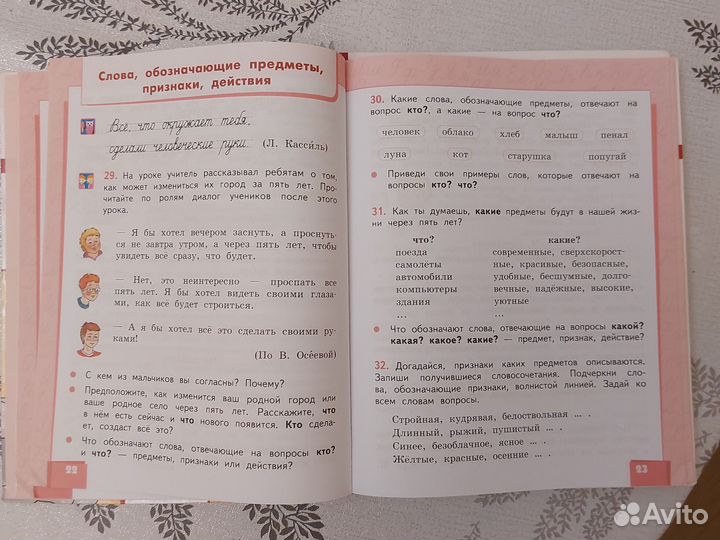 Слова, обозначающие предметы,
признаки, действия
Всё, что окружает тебя,
сделали человеческие руки. (Л. Касси́ль)
29. На уроке учитель рассказывал ребятам о том,
как может измениться их город за пять лет. Про-
читайте по ролям диалог учеников после этого
урока.
— Я бы хотел вечером заснуть, а проснуть-
ся не завтра утром, а через пять лет, чтобы
увидеть всё сразу, что будет.
— Нет, это неинтересно — проспать все
пять лет. Я бы хотел видеть своими глаза-
ми, как всё будет строиться.
— А я бы хотел всё это сделать своими ру-
ками!
(По В. Осе́евой)
• С кем из мальчиков вы согласны? Почему?
• Предположите, как изменится ваш родной город или
ваше родное село через пять лет. Расскажите, что
в нём есть сейчас и что нового появится. Кто сдела-
ет, создаст всё это?
• Что обозначают слова, отвечающие на вопросы кто?
и что? — предметы, признаки или действия?
22
30. Какие слова, обозначающие предметы, отвечают на
вопрос кто?, а какие — на вопрос что?
человек облако хлеб малыш пенал
луна кот старушка попугай
• Приведи свои примеры слов, которые отвечают на
вопросы кто? что?
31. Как ты думаешь, какие предметы будут в нашей жиз-
ни через пять лет?
что? какие?
поезда современные, сверхскорост-
самолёты ные, красивые, безопасные,
автомобили удобные, бесшумные, долго-
компьютеры вечные, надёжные, высокие,
здания уютные
... ...
• Что обозначают слова, отвечающие на вопросы какой?
какая? какое? какие? — предмет, признак, действие?
32. Догадайся, признаки каких предметов описываются.
Запиши получившиеся словосочетания. Подчеркни сло-
ва, обозначающие признаки, волнистой линией. Задай ко
всем словам вопросы.
Стройная, кудрявая, белоствольная ... .
Длинный, рыжий, пушистый ... .
Синее, безоблачное, ясное ... .
Жёлтые, красные, осенние ... .
23
Avito